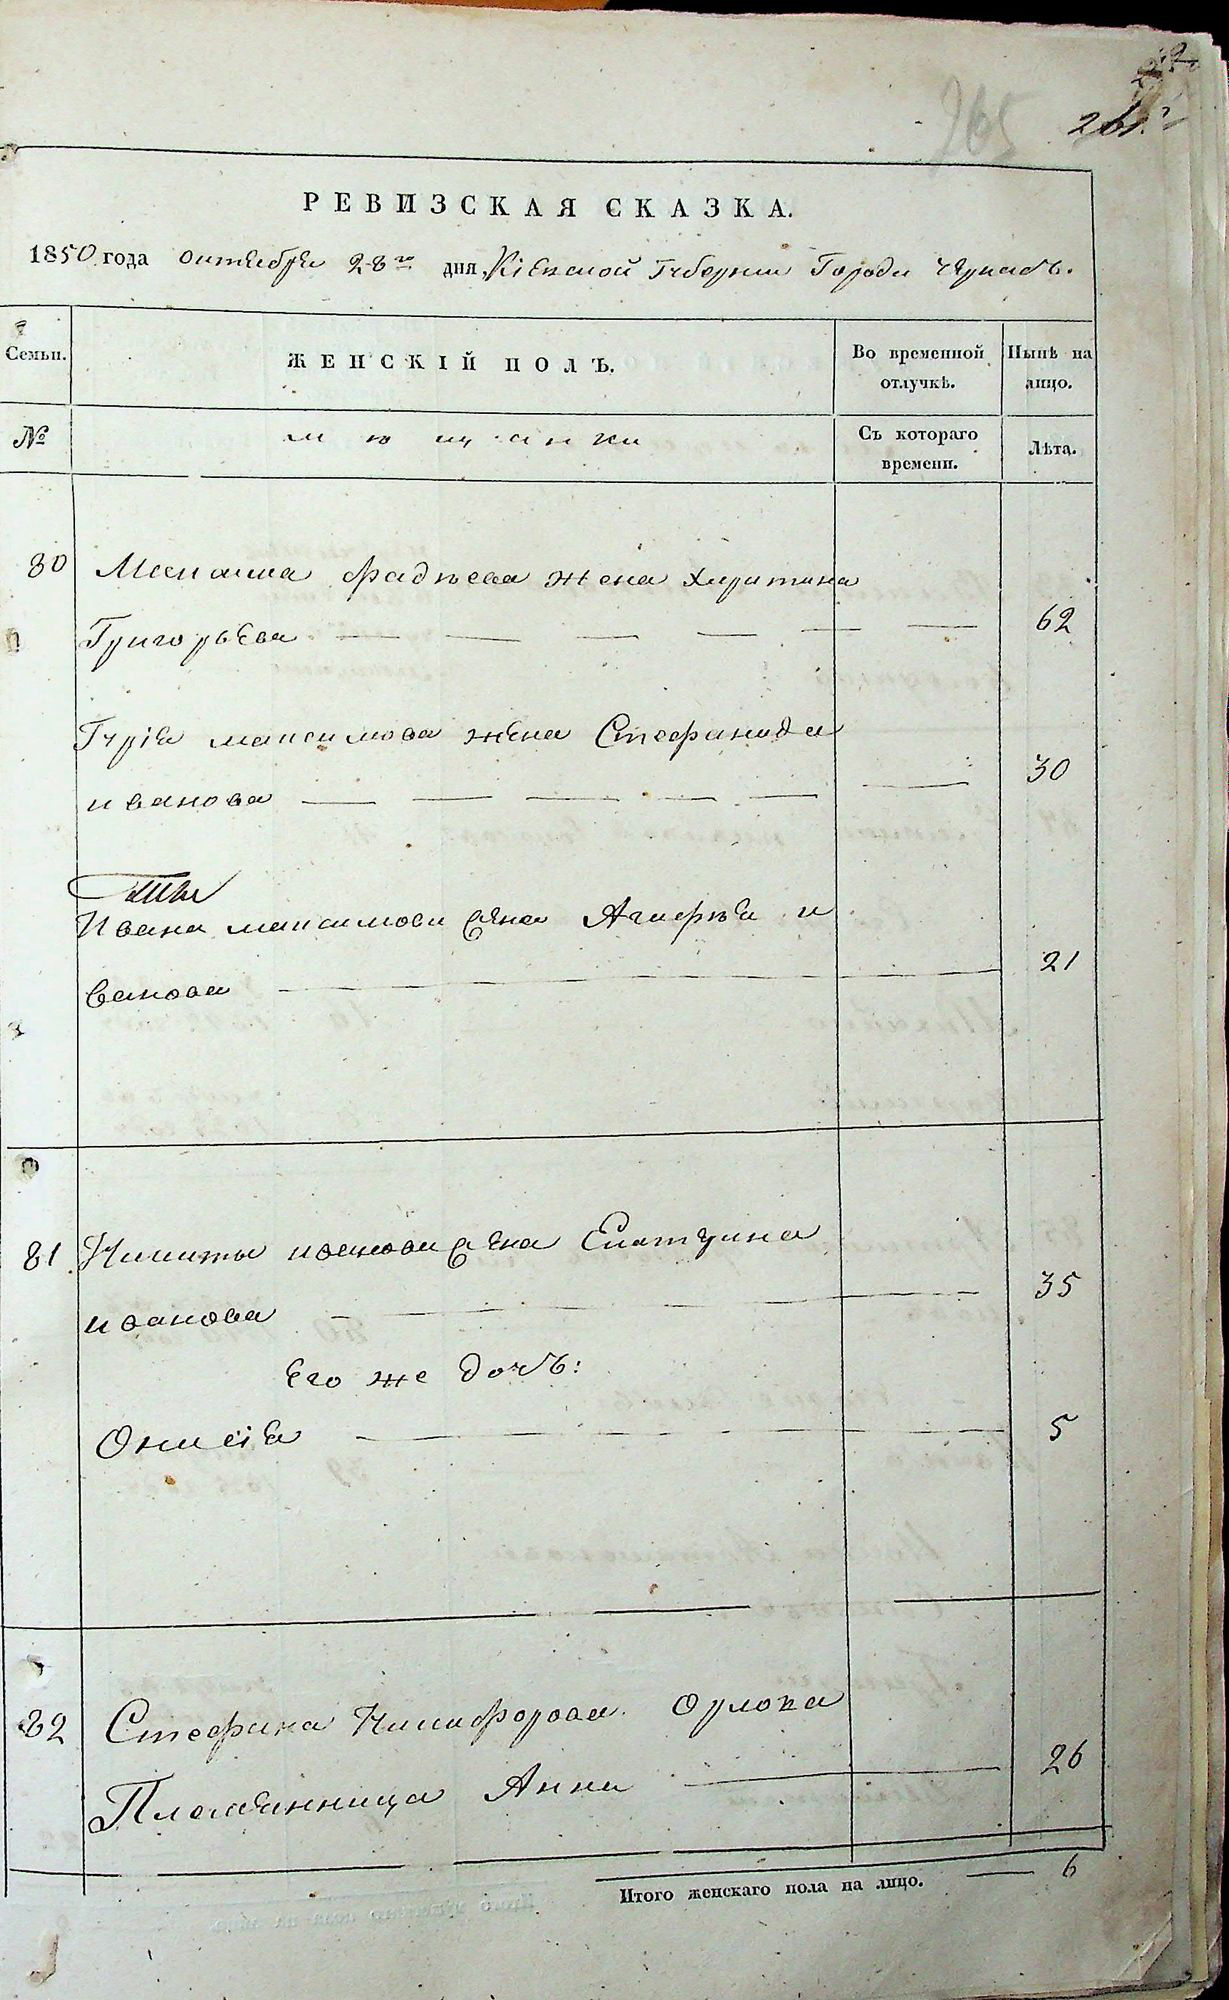 265
РЕВИЗСКАЯ СКАЗКА.
1850 года октября 28го дня Кіевской Губерніи Города Черкасъ.
Семьи. ЖЕНСКІЙ ПОЛЪ. Во временной отлучкѣ. Нынѣ на лицо.
№ мѣщанки Съ котораго времени. Лѣта.
80 Максима Фадѣева жена Харитина
Григорьева 62
Гурія максимова жена Стефанида
иванова 30
Ивана максимова жена Агафья и
ванова 21
81 Никиты иванова жена Екатерина
иванова 35
Его же дочь:
Онисія 5
82 Стефана Никифорова Орлова
Племянница Анна 26
Итого женскаго пола на лицо. 6